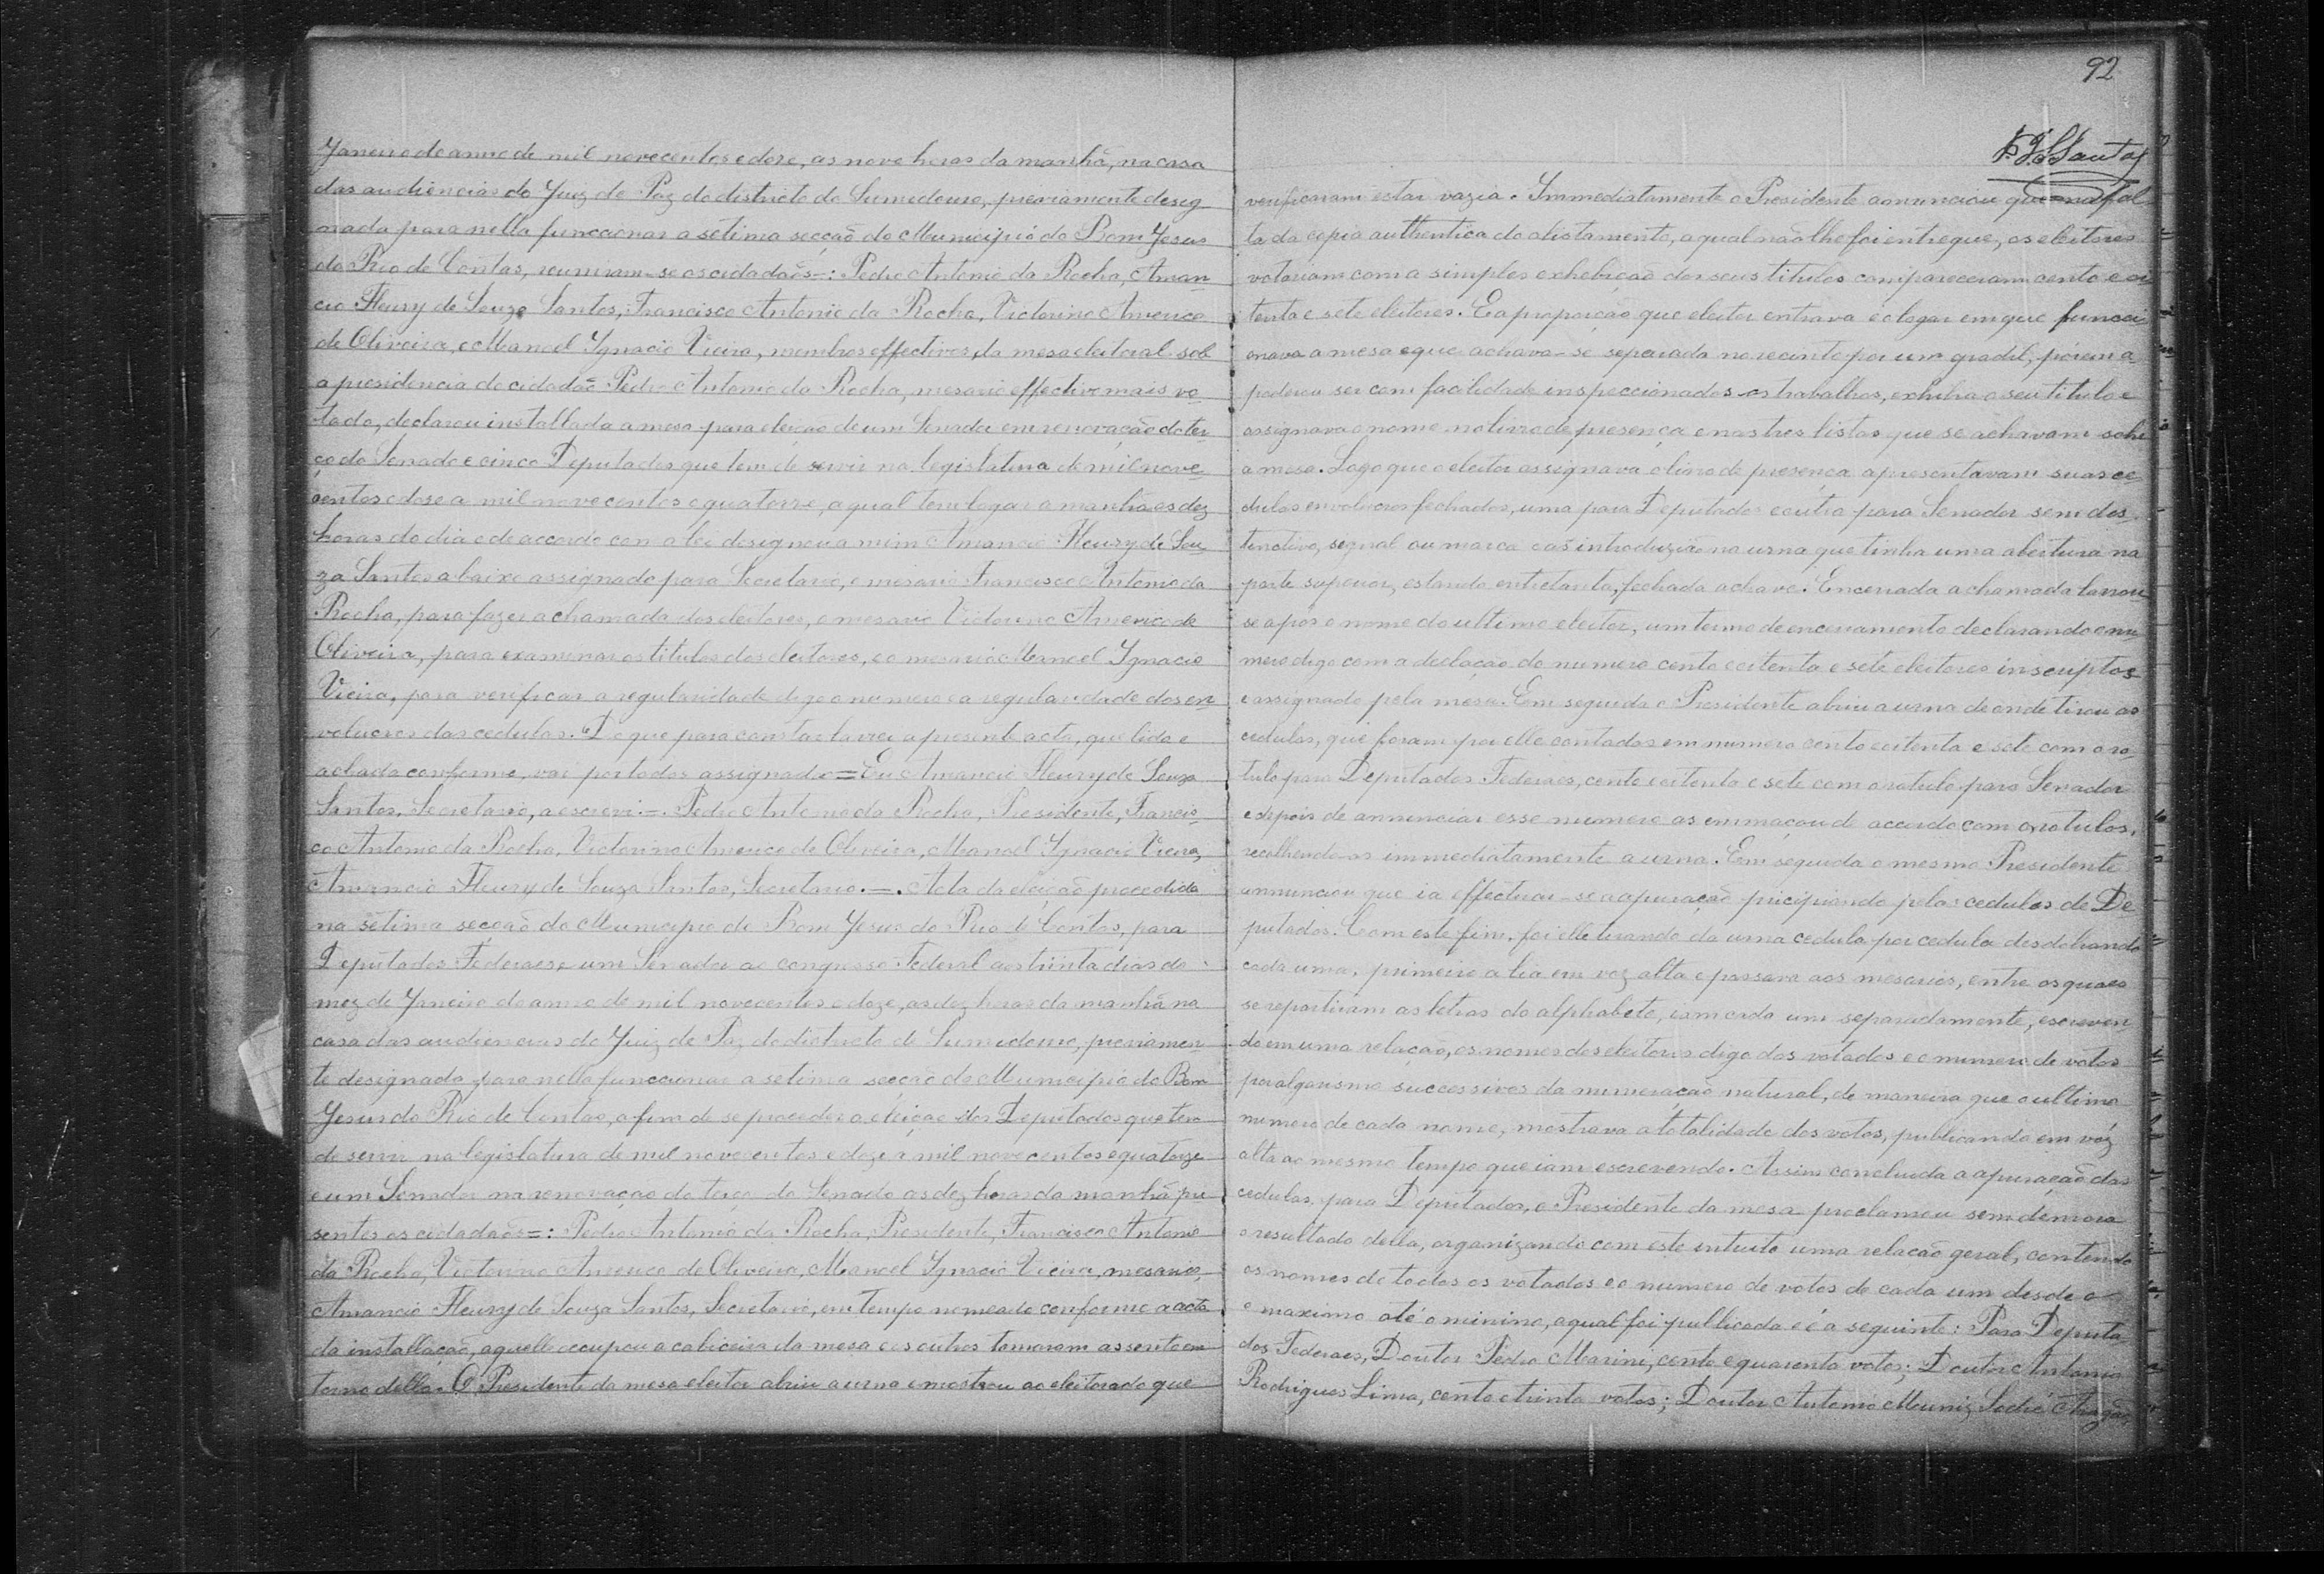 Janeiro do anno de mil novecentos e doze, as nove horas da manhã, na casa
das audiencias do Juiz de Paz do districto do Sumidouro, previamente desig
nada para nella funccionar a setima secção do Municipio do Bom Jesus
do Rio de Contas, reuniram-se os cidadãos=: Pedro Antonio da Rocha, Aman
cio Fleury de Souza Santos, Francisco Antonio da Rocha, Victorino Americo
de Oliveira, e Manoel Ignacio Vieira, membros effectivos da mesa eleitoral sob
a presidencia do cidadão Pedro Antonio da Rocha, mesario effectivo mais vo
tado, declarou installada a mesa para eleição de um Senador em renovação do ter
ço do Senado e cinco Deputados que tem de servir na legislatura de mil nove
centos e dose a mil novecentos e quatorze, a qual tem logar amanhã as dez
horas do dia e de accordo com a lei designou a mim Amancio Fleury de Sou
za Santos abaixo assignado para Secretario, o mesario Francisco Antonio da
Rocha, para fazer a chamada dos eleitores, o mesario Victorino Americo de
Oliveira, para examinar os titulos dos eleitores, e o mesario Manoel Ignacio
Vieira, para verificar a regularidade digo o numero e a regularidade dos en
volucros das cedulas. Do que para constar lavrei a presente acta, que lida e
achada conforme, vae por todos assignada= Eu Amancio Fleury de Souza
Santos, Secretario, a escrevi.=. Pedro Antonio da Rocha, Presidente, Francis
co Antonio da Rocha, Victorino Americo de Oliveira, Manoel Ignacio Vieira,
Amancio Fleury de Souza Santos, Secretario.=. Acta da eleição procedida
na setima secção do Municipio do Bom Jesus do Rio de Contas, para
Deputados Federaes e um Senador ao congresso Federal aos trinta dias do
mez de Janeiro do anno de mil novecentos e doze, as dez horas da manhã na
casa das audiencias do Juiz de Paz do districto de Sumidouro, previamen
te designada para nella funccionar a setima secção do Municipio do Bom
Jesus do Rio de Contas, a fim de se proceder a eleição dos Deputados que tem
de servir na legislatura de mil novecentos e doze a mil novecentos e quatorze
e um Senador na renovação do terço do Senado as dez horas da manhã pre
sentes os cidadãos=: Pedro Antonio da Rocha, Presidente, Francisco Antonio
da Rocha, Victorino Americo de Oliveira, Manoel Ignacio Vieira, mesarios,
Amancio Fleury de Souza Santos, Secretario, em tempo nomeado conforme a acta
da installação, aquelle occupou a cabiceira da mesa e os outros tomaram assento em
torno della. O Presidente da mesa eleitor abriu a urna e mostrou ao eleitorado que
92
Santos
verificaram estar vazia. Immediatamente o Presidente annunciou que na fal
ta da copia authentica do alistamento, a qual não lhe foi entregue, os eleitores
votariam com a simples exhebição dos seus titulos compareceram cento e oi
tenta e sete eleitores. E a proporção que eleitor entrava e o logar em que funcci
onava a mesa e que achava-se separada no recinto por um gradil, porem a
poderem ser com facilidade inspeccionados os trabalhos, exhibia o seu titulo e
assignava o nome no livro de presença e nas tres listas que se achavam sobre
a mesa. Logo que o eleitor assignava o livro de presença apresentavam suas ce
dulas envolucros fechados, uma para Deputados e outra para Senador sem des
tinctivo, segnal ou marca e as introduzião na urna que tinha uma abertura na
parte superior, estando entretanto, fechada a chave. Encerrada a chamada lavrou
se apos o nome do ultimo eleitor, um termo de encerramento declarando o nu
mero digo com a declação do numero cento e oitenta e sete eleitores inscriptos
e assignado pela mesa. Em seguida o Presidente abriu a urna de onde tirou as
cedulas, que foram por elle contadas em numero cento e oitenta e sete com o ro
tulo para Deputados Federaes, cento e oitenta e sete com o rotulo para Senador
e depois de annunciar esse numero as emmaçou de accordo com os rotulos,
recolhendo-as immediatamente a urna. Em seguida o mesmo Presidente
annunciou que ia effectuar-se a apuração pricipiando pelas cedulas de De
putados. Com este fim, foi elle tirando da urna cedula por cedula desdobrando
cada uma, primeiro a lia em voz alta e passava aos mesarios, entre os quaes
se repartiram as letras do alphabeto, iam cada um separadamente, escreven
do em uma relação, os nomes dos eleitores digo dos votados e o numero de votos
por algarismo successivos da numeração natural, de maneira que o ultimo
numero de cada nome, mostrava a totalidade dos votos, publicando em voz
alta ao mesmo tempo que iam escrevendo. Assim concluida a apuração das
cedulas, para Deputados, o Presidente da mesa proclamou sem demora
o resultado della, organizando com este intuito uma relação geral, contendo
os nomes de todos os votados e o numero de votos de cada um desde o
o maximo até o minimo, a qual foi publicada e é a seguinte: Para Deputa
dos Federaes, Doutor Pedro Mariani, cento e quarenta votos; Doutor Antonio
Rodrigues Lima, cento e trinta votos; Doutor Antonio Muniz Sodré Aragão,